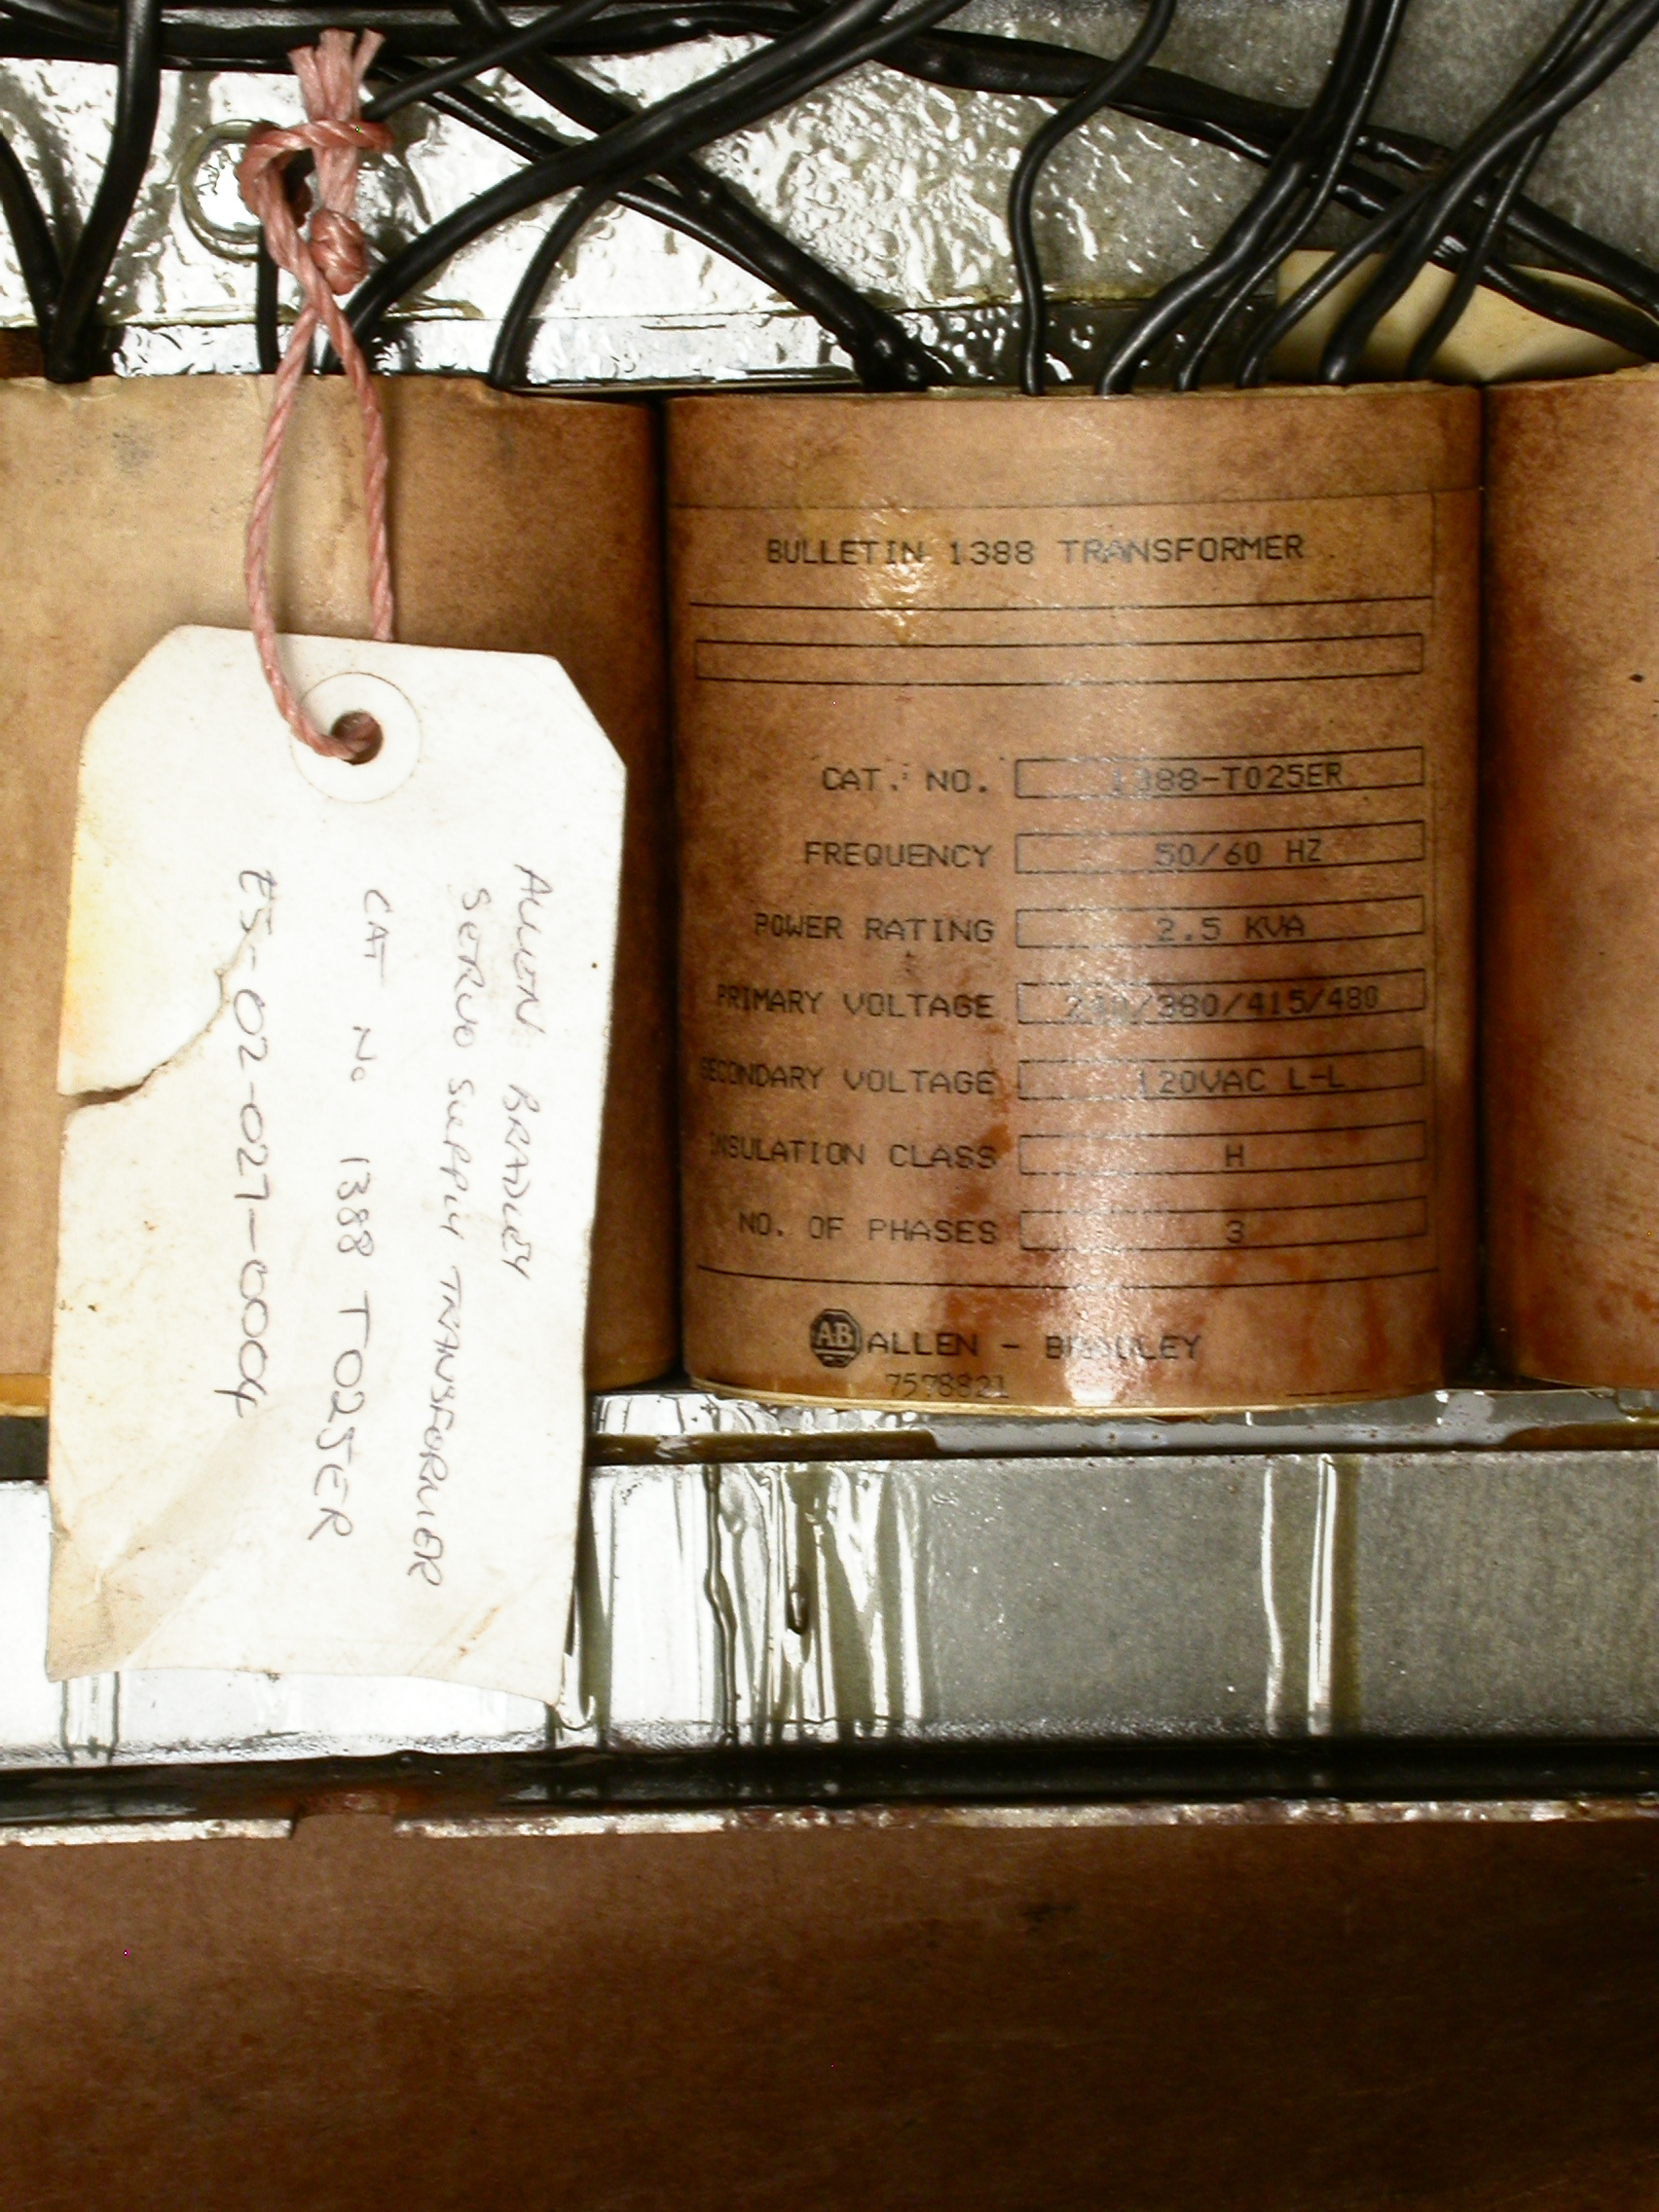 ALLEN BRADLEY
SERVO SUPPLY TRANSFORMER
CAT No 1388 T025ER
ES-02-027-0004
BULLETIN 1388 TRANSFORMER
CAT. NO. 1388-T025ER
FREQUENCY 50/60 HZ
POWER RATING 2.5 KVA
PRIMARY VOLTAGE 240/380/415/480
SECONDARY VOLTAGE 120VAC L-L
INSULATION CLASS H
NO. OF PHASES 3
AB ALLEN - BRADLEY
7578821